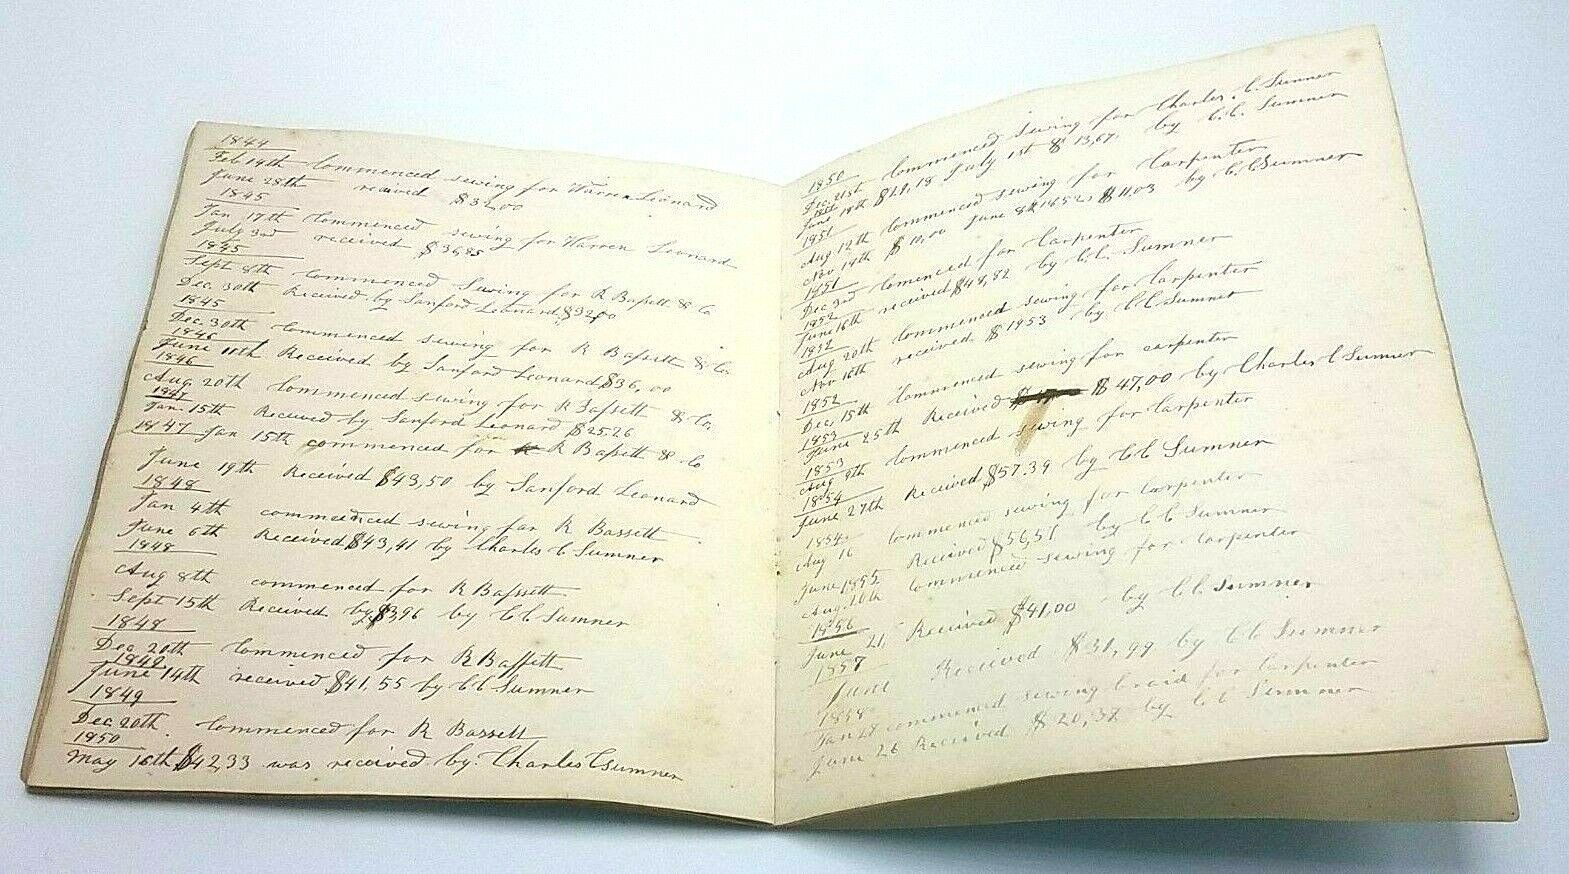 1844
Feb 14th Commenced sewing for Warren Leonard
June 28th received $32.00
1845
Jan 17th Commenced sewing for Warren Leonard
July 3rd received $36,85
1845
Sept 8th Commenced Sewing for R Bassett & Co
Dec. 30th Received by Sanford Leonard $32,00
1845
Dec. 30th Commenced sewing for R Bassett & Co.
1846
June 11th Received by Sanford Leonard $36,00
1846
Aug 20th Commenced sewing for R Bassett & Co.
1847
Jan. 15th Received by Sanford Leonard $25.26
1847 Jan 15th commenced for R Bassett & Co
June 19th Received $43,50 by Sanford Leonard
1848
Jan 4th commenced sewing for R Bassett
June 6th Received $43,41 by Charles C Sumner
1848
Aug 8th commenced for R Bassett
Sept 15th Received by $3,96 by C C Sumner
1848
Dec 20th Commenced for R Bassett
1849
June 14th received $41.55 by C C Sumner
1849
Dec 20th. Commenced for R Bassett
1850
May 16th $42,33 was received by Charles C Sumner
1850
Dec. 21st Commenced sewing for Charles. C. Sumner
June 18th July 1st $13,67, by C. C. Sumner
1851
Aug 12th Commenced sewing for Carpenter
Nov 14th $10,00 June 8th 1852, $11.03 by C. C Sumner
1851
Dec 3rd Comenced for Carpenter
1852
June 16th received $49,82 by C C. Sumner
1852
Aug 20th commenced sewing for Carpenter
Nov 16th received $19 53 by C C Sumner
1852
Dec 15th Commenced sewing for carpenter
1853
June 25th Received $47,00 by Charles C Sumner
1853
Aug 9th Commenced sewing for Carpenter
1854
June 27th Received $57.39 by C C Sumner
1854
Aug 16 Commenced sewing for Carpenter
June 1855 Received $56,51 by C C Sumner
Aug. 20th Commenced sewing for Carpenter
1856
June 21, Received $41,00 by C C. Sumner
1857
June Received $31,99 by C C Sumner
1858
Jan commenced sewing braid for Carpenter
June 26 Received $20,32 by C C Summer